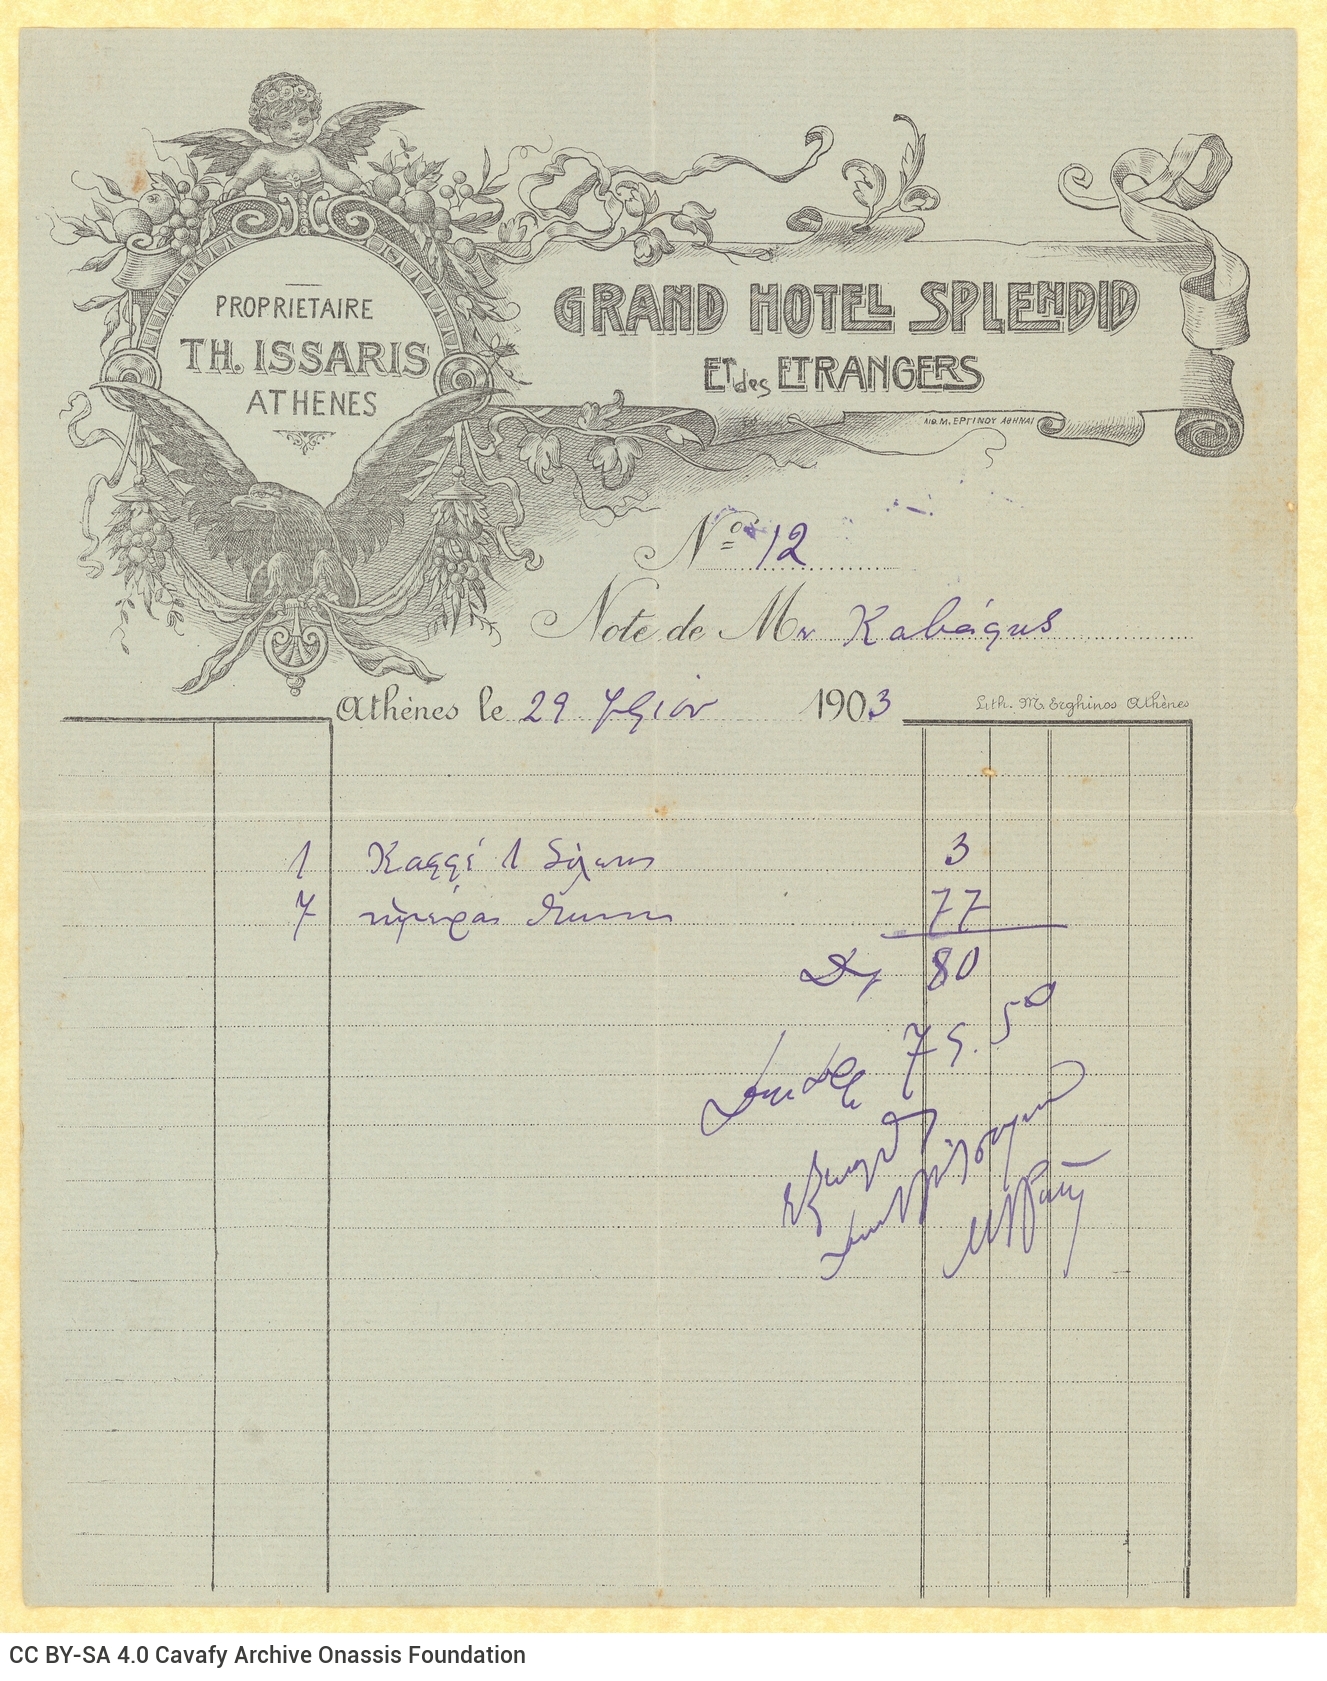 PROPRIETAIRE
TH. ISSARIS
ATHENES
GRAND HOTEL SPLENDID
ET des ETRANGERS
ΛΙΘ. Μ. ΕΡΓΙΝΟΥ ΑΘΗΝΑΙ
Nº 12
Note de Mr Καβάφης
Athènes le 29 7βρίου 1903
Lith. M. Erghinos Athènes
1 Καφφέ 1 3
7 ημέρας 77
Δρ 80
75.50
CC BY-SA 4.0 Cavafy Archive Onassis Foundation